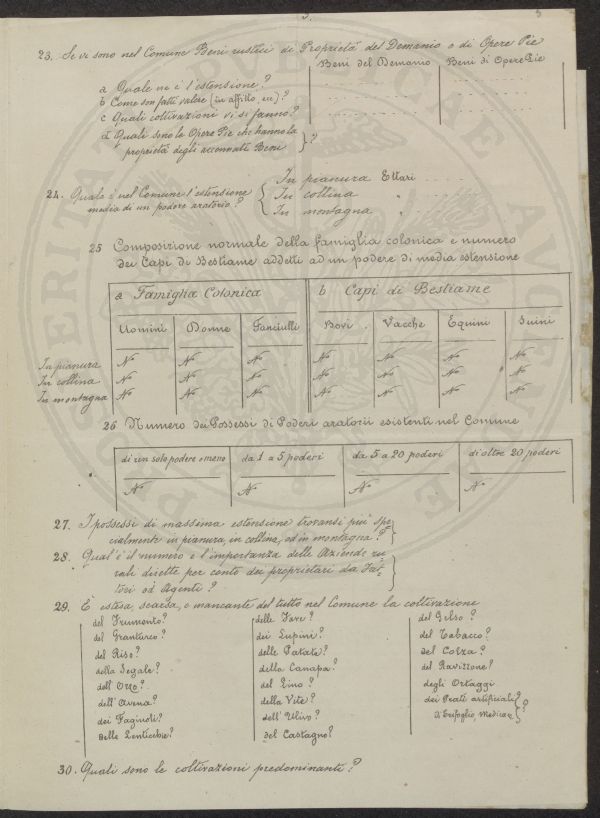 3.
3
23. Se vi sono nel Comune Beni rustici di Proprietà del Demanio o di Opere Pie
Beni del Demanio Beni di Opere Pie
a Quale ne è l'estensione?
b Come son fatti valere (in affitto, ecc)?
c Quali coltivazioni vi si fanno?
d Quali sono le Opere Pie che hanno la
proprietà degli accennati Beni ?
24. Quale è nel Comune l'estensione
media di un podere aratorio?
In pianura Ettari
In collina "
In montagna "
25 Composizione normale della famiglia colonica e numero
dei Capi di Bestiame addetti ad un podere di media estensione
a Famiglia Colonica b Capi di Bestiame
Uomini Donne Fanciulli Bovi Vacche Equini Suini
In pianura N° N° N° N° N° N° N°
In collina N° N° N° N° N° N° N°
In montagna N° N° N° N° N° N° N°
26 Numero dei Possessi di Poderi aratorii esistenti nel Comune
di un solo podere o meno da 1 a 5 poderi da 5 a 20 poderi di oltre 20 poderi
N° N° N° N°
27. I possessi di massima estensione trovansi più spe-
cialmente in pianura, in collina, od in montagna?
28. Qual'è il numero e l'importanza delle Aziende ru-
rali dirette per conto dei proprietari da Fat-
tori od Agenti?
29. È estesa, scarsa, o mancante del tutto nel Comune la coltivazione
del Frumento?
del Granturco?
del Riso?
della Segale?
dell'Orzo?
dell'Avena?
dei Fagiuoli?
delle Lenticchie?
delle Fave?
dei Lupini?
delle Patate?
della Canapa?
del Lino?
della Vite?
dell'Ulivo?
del Castagno?
del Gelso?
del Tabacco?
del Colza?
del Ravizzone?
degli Ortaggi
dei Prati artificiali?
di Trifoglio, Medica &, ?
30. Quali sono le coltivazioni predominanti?